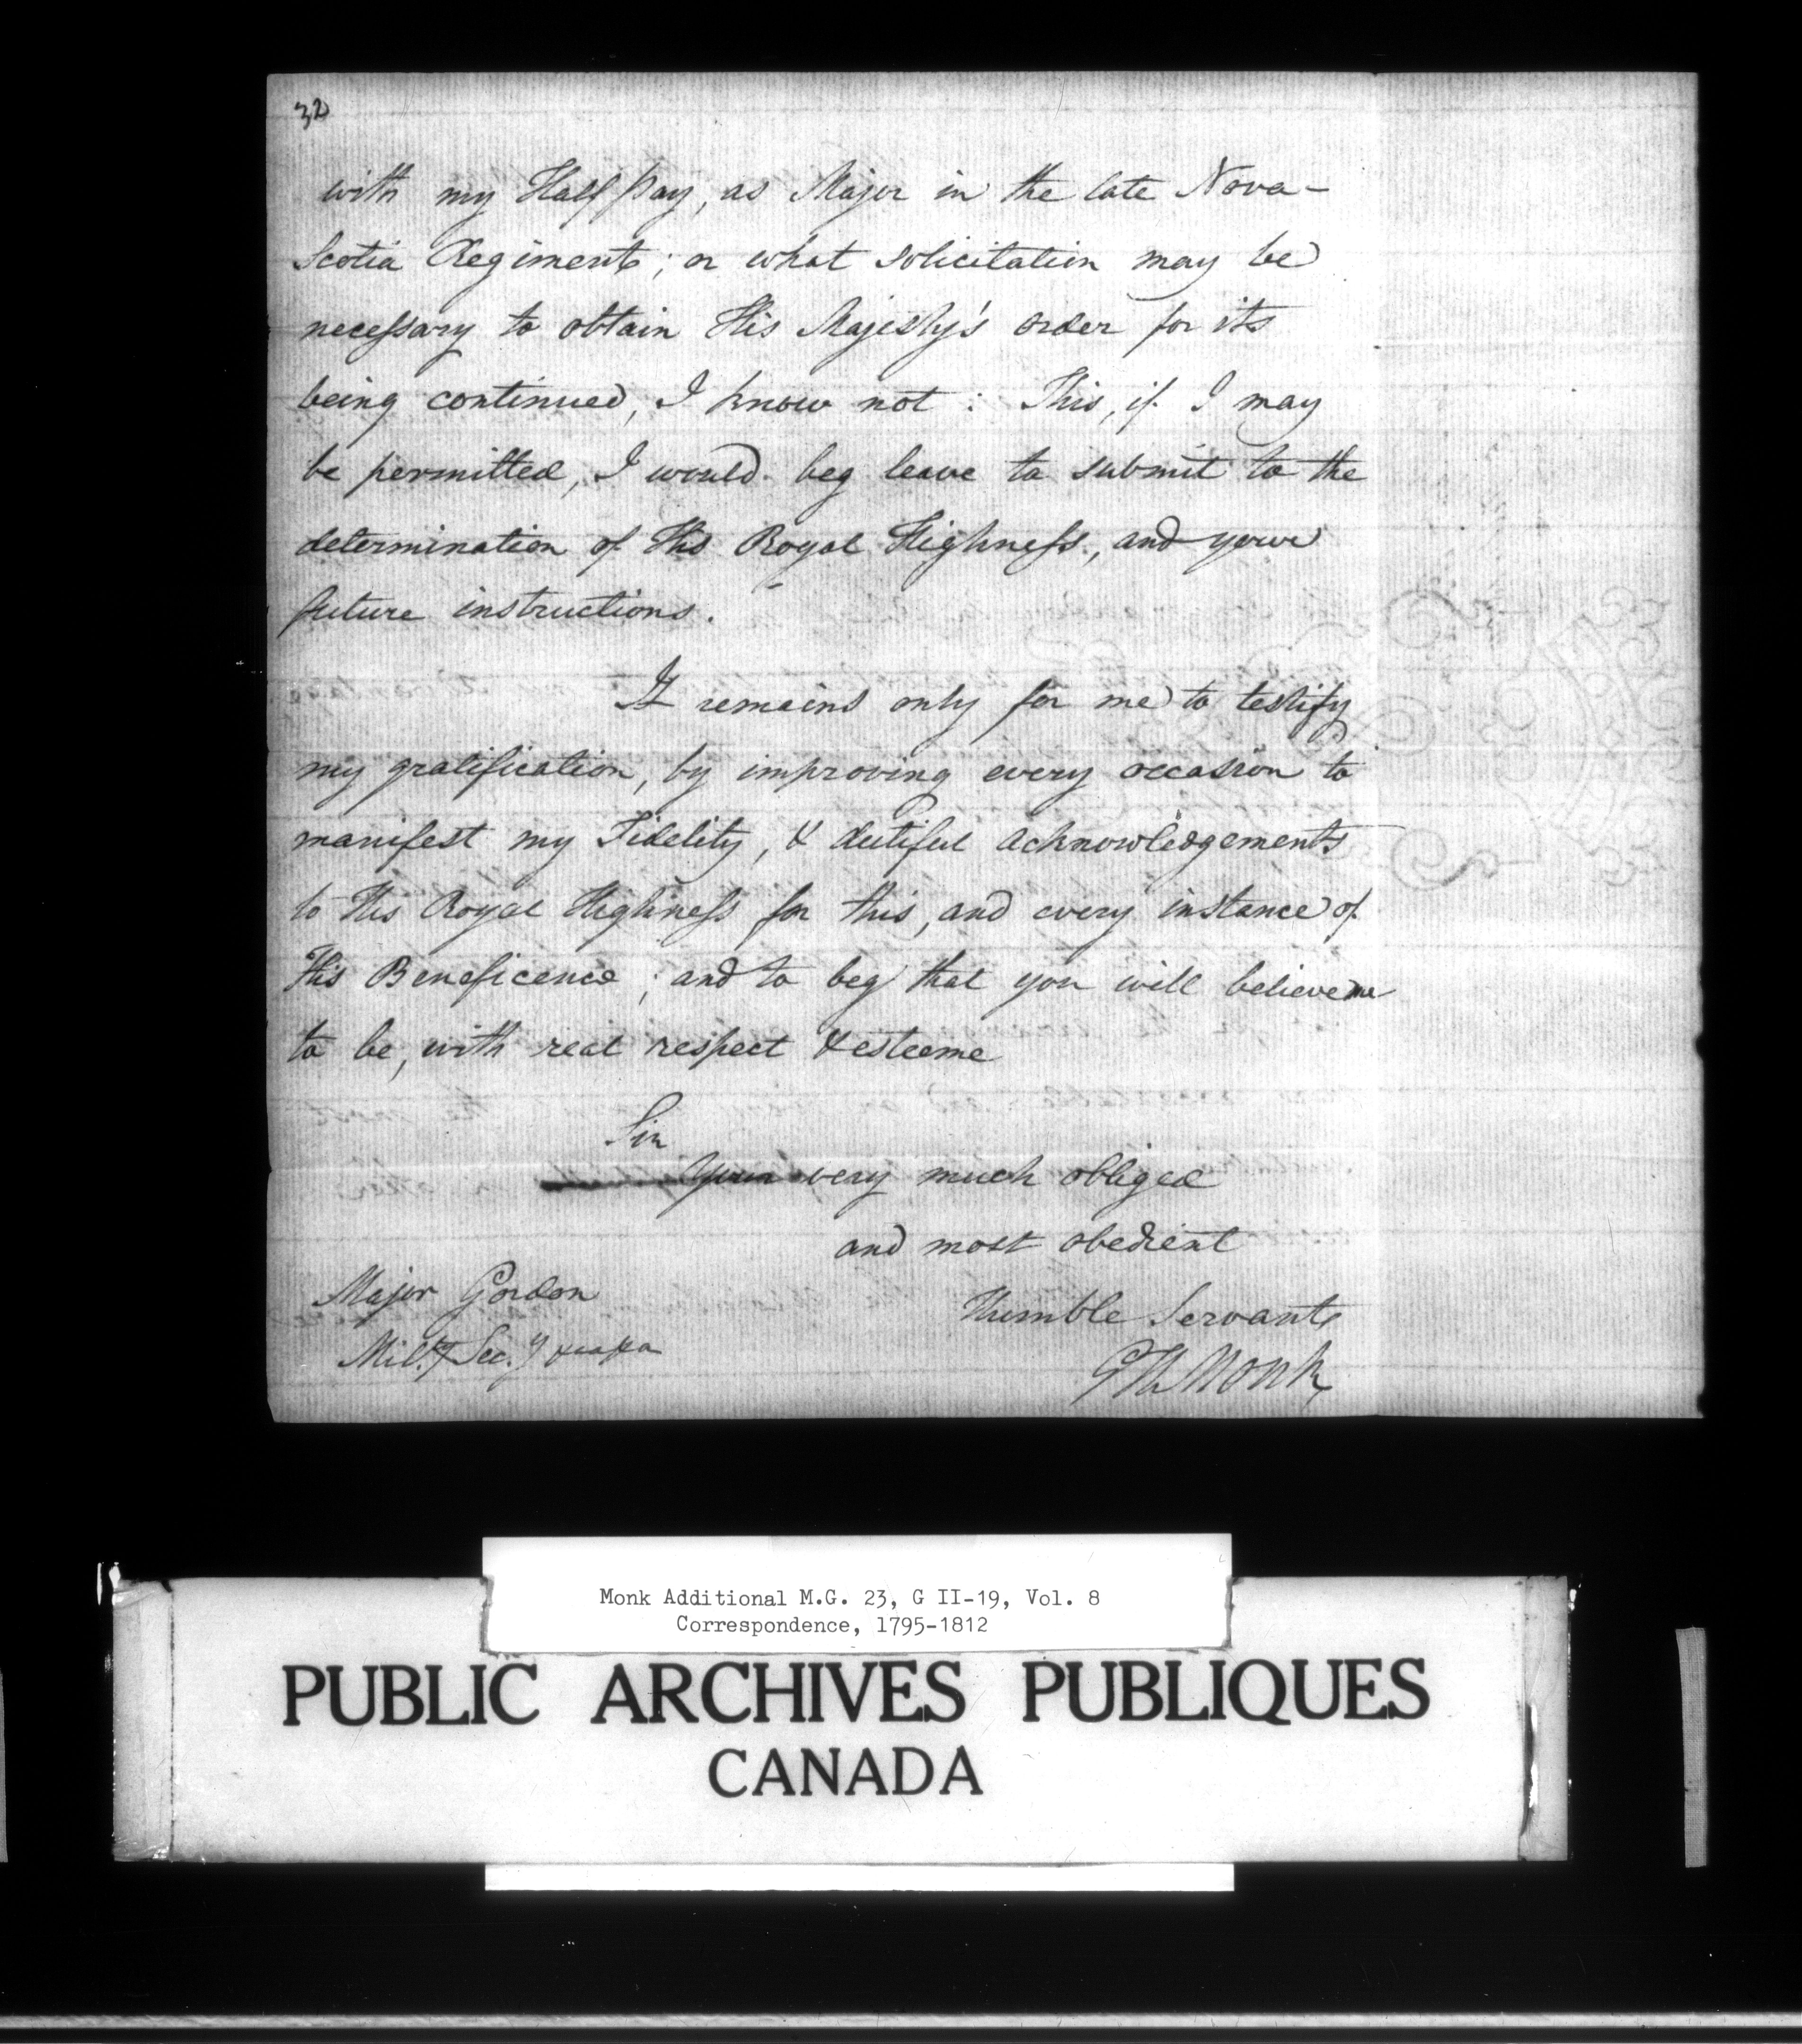 32
with my Half Pay, as Major in the late Nova-
Scotia Regiment; or what solicitation may be
necessary to obtain His Majesty's order for its
being continued, I know not: This, if I may
be permitted, I would beg leave to submit to the
determination of His Royal Highness, and your
future instructions.
It remains only for me to testify
my gratification, by improving every occasion to
manifest my Fidelity, & dutiful acknowledgements
to His Royal Highness for this, and every instance of
His Beneficence; and to beg that you will believe me
to be, with real respect & esteeme
Sir
Your very much obliged
and most obedient
Humble Servant
GH Monk
Major Gordon
Milty Secy
Monk Additional M.G. 23, G II-19, Vol. 8
Correspondence, 1795-1812
PUBLIC ARCHIVES PUBLIQUES
CANADA